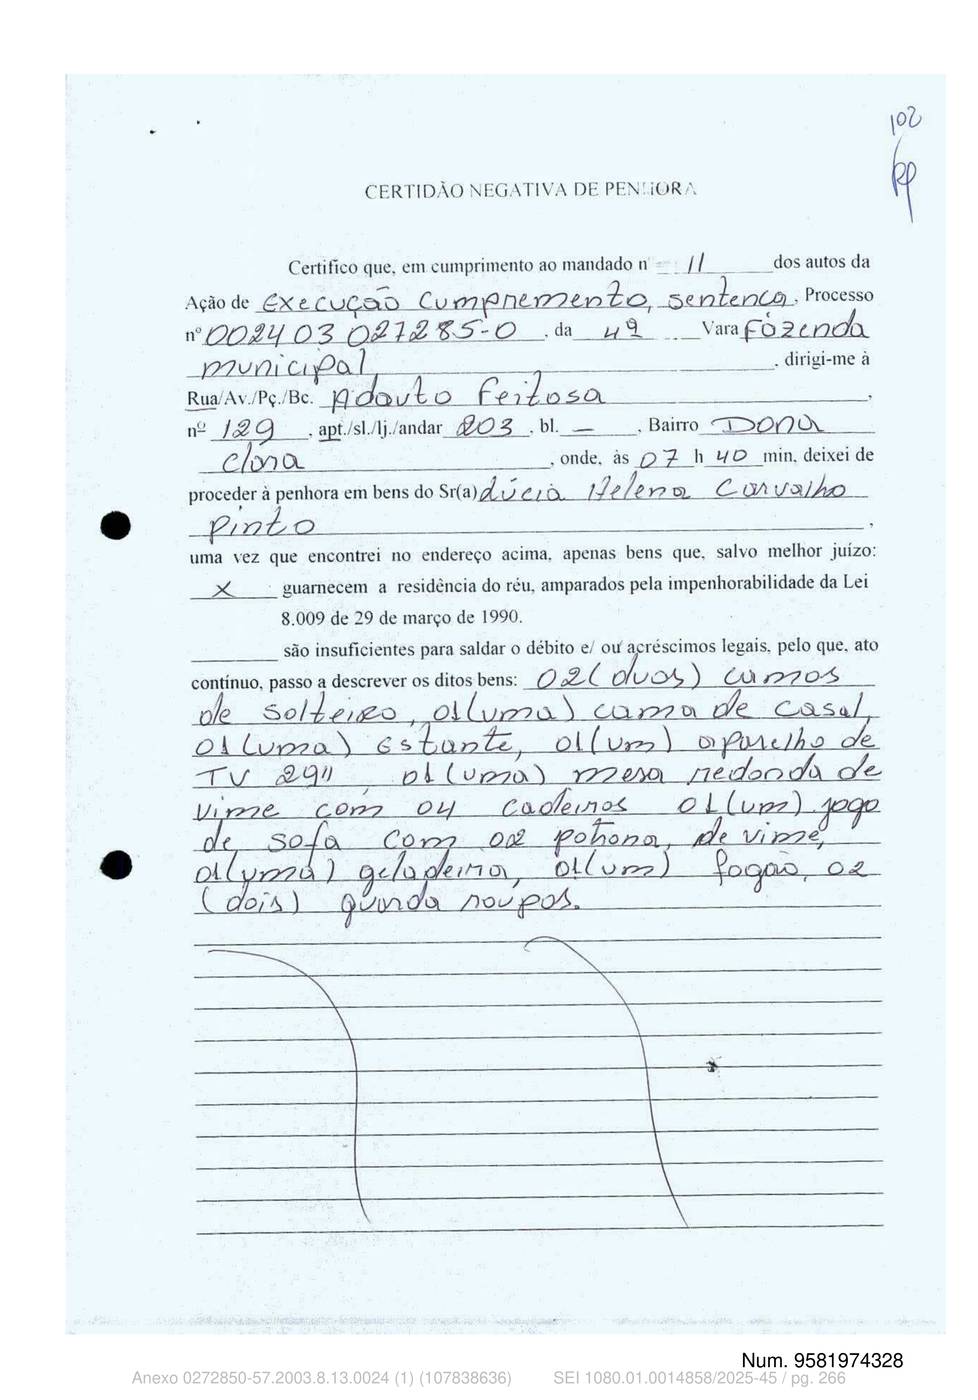 102
RP
CERTIDÃO NEGATIVA DE PENHORA
Certifico que, em cumprimento ao mandado nº 11 dos autos da
Ação de execução cumpremento, sentença. Processo
nº 002403027285-0, da 4ª Vara Fazenda
municipal, dirigi-me à
Rua/Av./Pç./Bc. Adauto Feitosa,
nº 129, apt./sl./lj./andar 203, bl. —, Bairro Dona
Clara, onde, às 07 h 40 min, deixei de
proceder à penhora em bens do Sr(a) Lúcia Helena Carvalho
Pinto,
uma vez que encontrei no endereço acima, apenas bens que, salvo melhor juízo:
X guarnecem a residência do réu, amparados pela impenhorabilidade da Lei
8.009 de 29 de março de 1990.
são insuficientes para saldar o débito e/ ou acréscimos legais, pelo que, ato
contínuo, passo a descrever os ditos bens: 02 (duas) camas
de solteiro, 01 (uma) cama de casal,
01 (uma) estante, 01 (um) aparelho de
TV 29", 01 (uma) mesa redonda de
vime com 04 cadeiras 01 (um) jogo
de sofá com 02 potrona, de vime,
01 (uma) geladeira, 01 (um) fogão, 02
(dois) guarda roupas.
Num. 9581974328
Anexo 0272850-57.2003.8.13.0024 (1) (107838636) SEI 1080.01.0014858/2025-45 / pg. 266